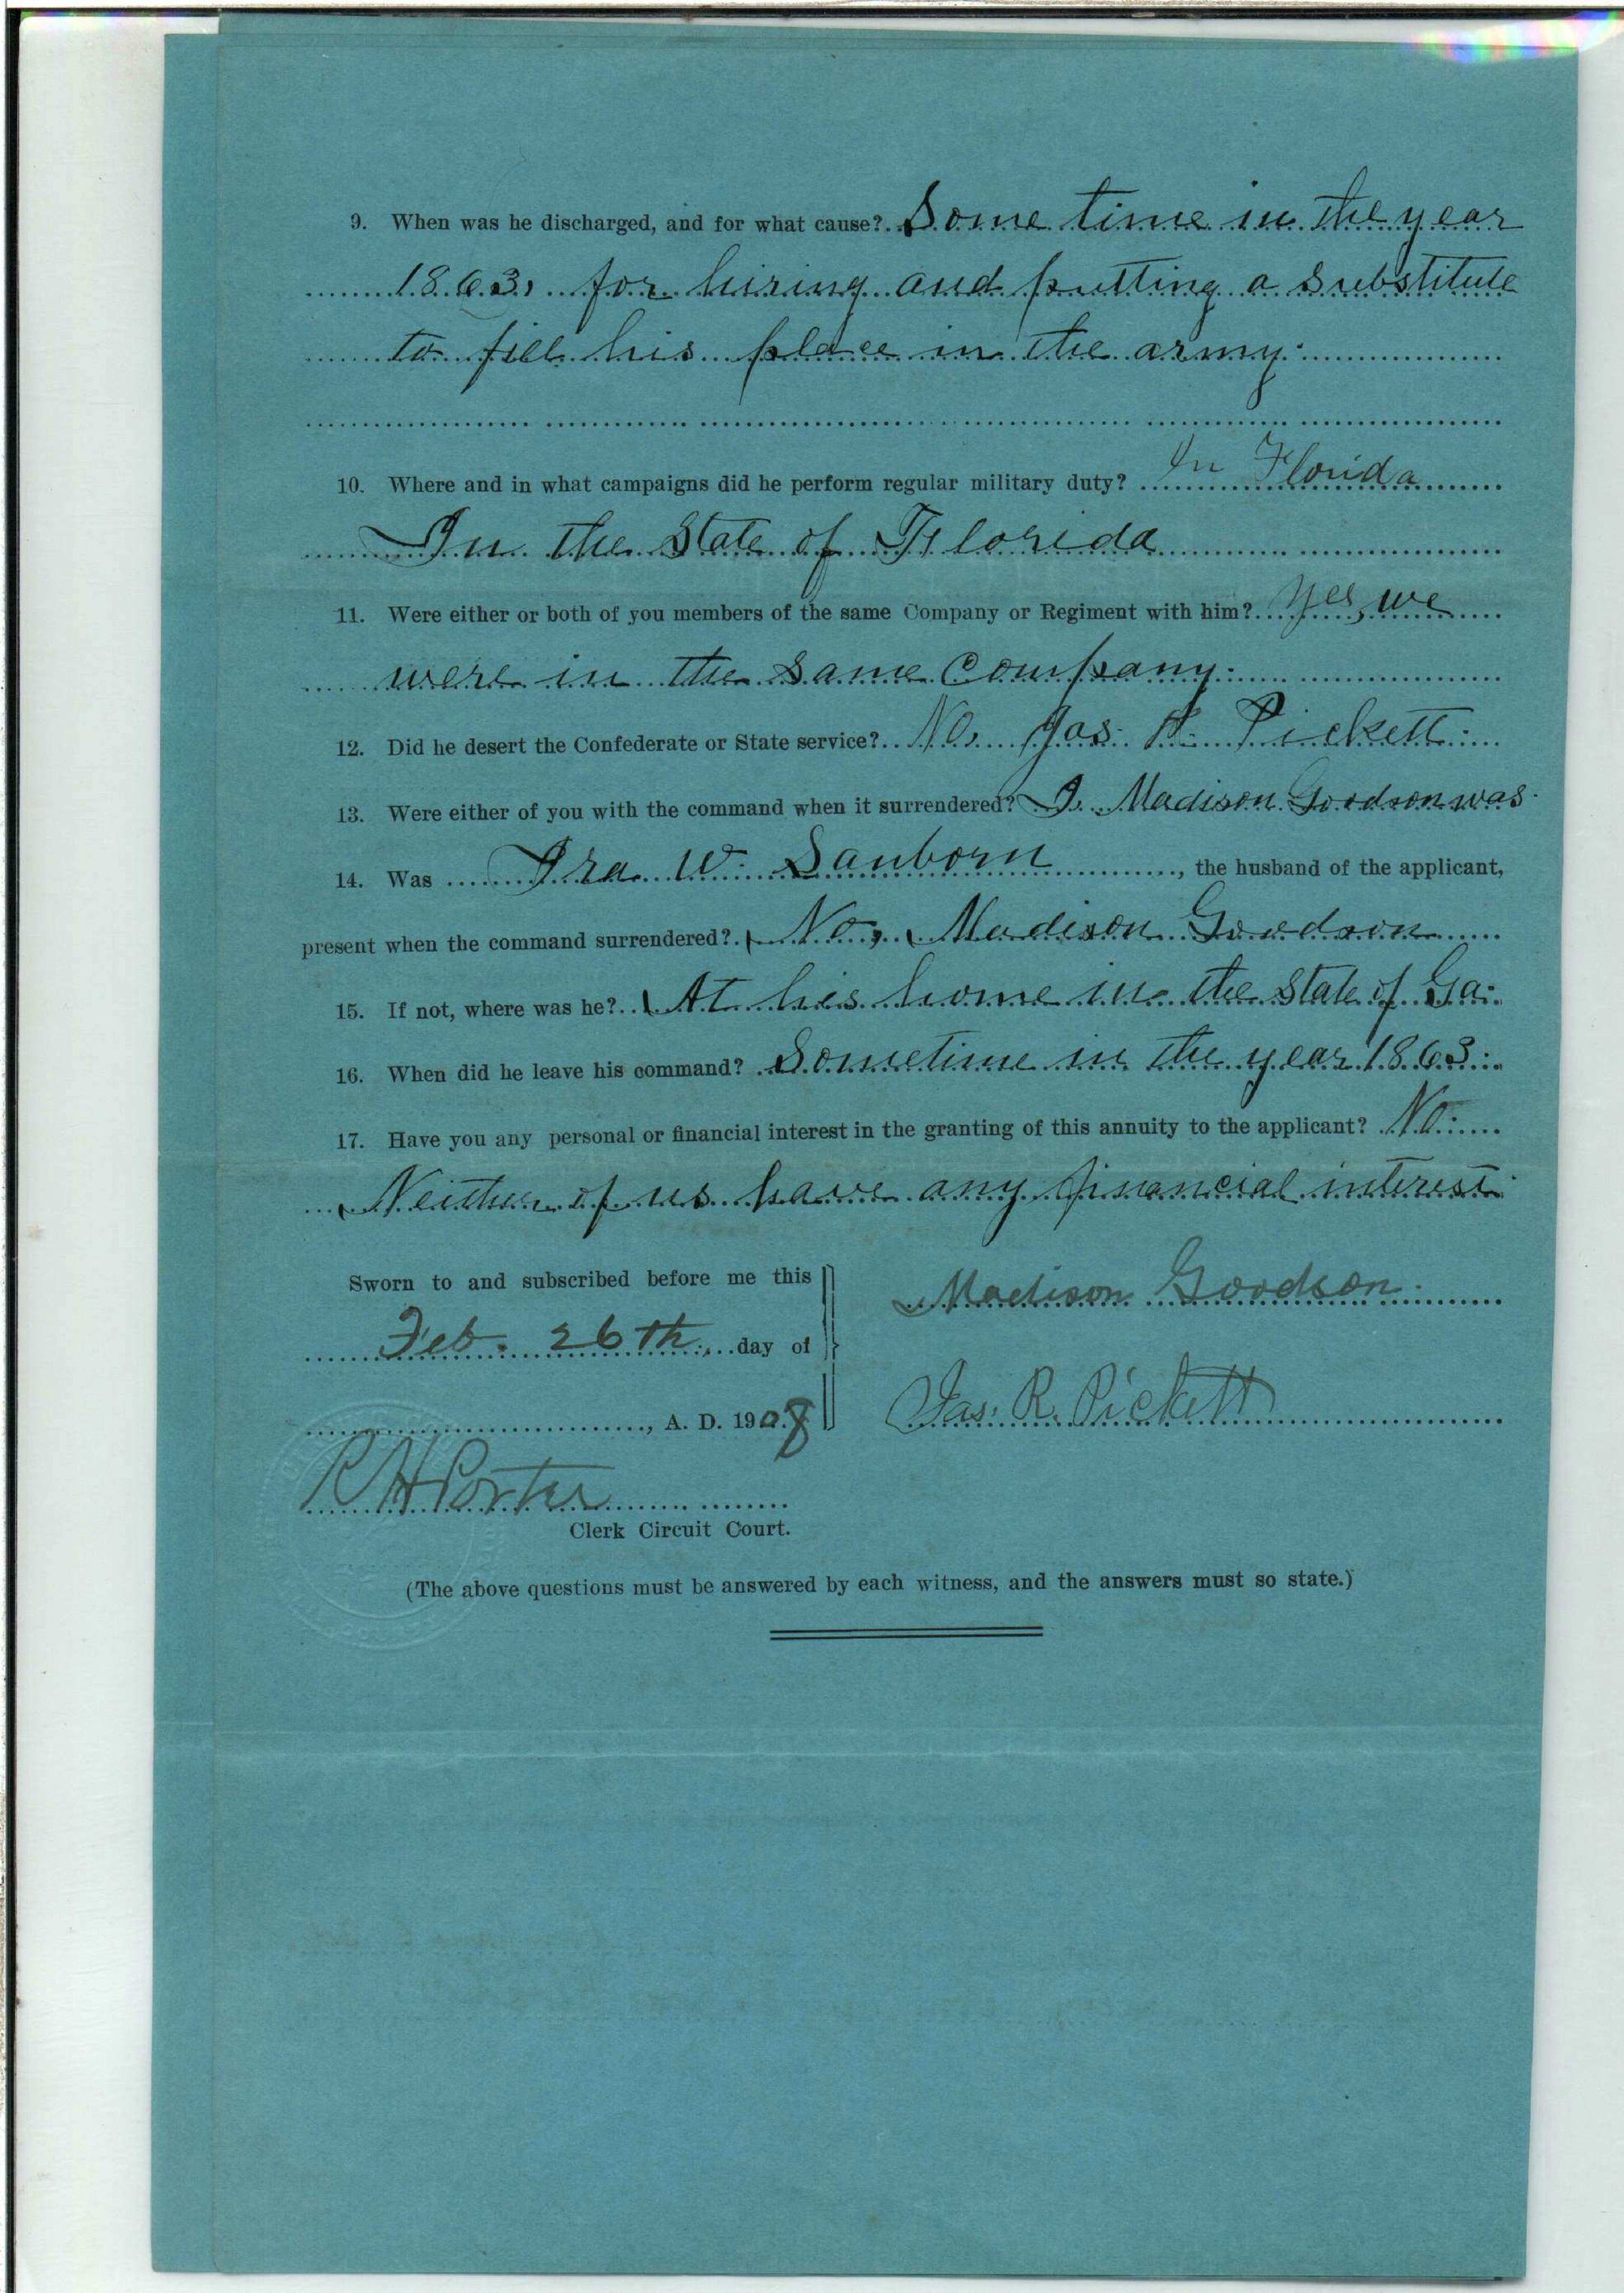 9. When was he discharged, and for what cause? Some time in the year
1863, for hiring and putting a substitute
to fill his place in the army.
10. Where and in what campaigns did he perform regular military duty? In Florida
In the State of Florida
11. Were either or both of you members of the same Company or Regiment with him? Yes, we
were in the same Company.
12. Did he desert the Confederate or State service? No, Jas. R. Pickett.
13. Were either of you with the command when it surrendered? I, Madison Goodson was.
14. Was Ira W. Sanborn, the husband of the applicant,
present when the command surrendered? No, Madison Goodson
15. If not, where was he? At his home in the State of Ga.
16. When did he leave his command? Sometime in the year 1863.
17. Have you any personal or financial interest in the granting of this annuity to the applicant? No.
Neither of us have any financial interest.
Sworn to and subscribed before me this
Madison Goodson.
Feb. 26th, day of
Jas. R. Pickett
, A. D. 1908
R H Porter
Clerk Circuit Court.
(The above questions must be answered by each witness, and the answers must so state.)